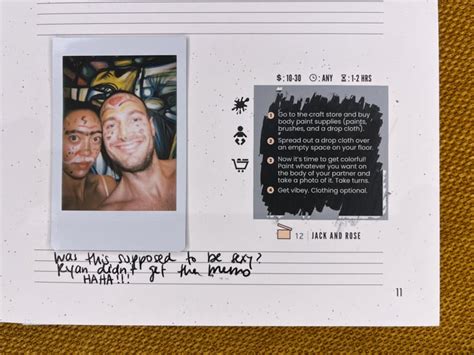 $: 10-30 : ANY : 1-2 HRS
1 Go to the craft store and buy
body paint supplies (paints,
brushes, and a drop cloth).
2 Spread out a drop cloth over
an empty space on your floor.
3 Now it's time to get colorful!
Paint whatever you want
on the body of your partner and
take a photo of it. Take turns.
4 Get vibey. Clothing optional.
12 | JACK AND ROSE
was this supposed to be sexy?
Ryan didn't get the memo
HAHA!!!
11